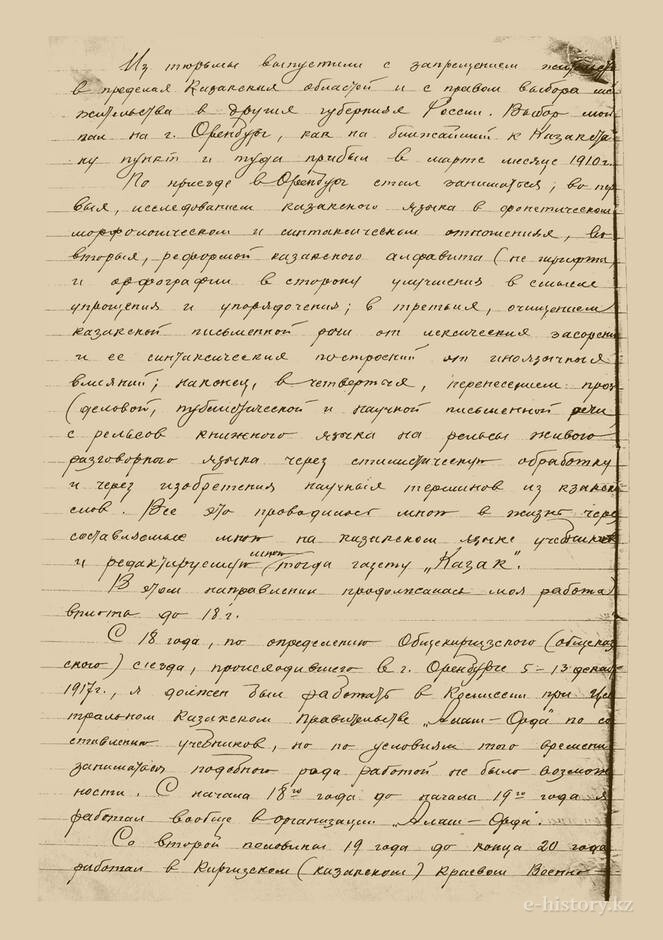 Из тюрьмы выпустили с запрещением
в пределах Казакских областей и с правом выбора
жительства в других губерниях России. Выбор мой
пал на г. Оренбург, как на ближайший к Казакста-
ну пункт и туда прибыл в марте месяце 1910 г.
По приезде в Оренбург стал заниматься; во пер-
вых, исследованием казакского языка в фонетическом
морфологическом и синтаксическом отношениях, во
вторых, реформой казакского алфавита (не шрифта)
и орфографии в сторону улучшения в смысле
упрощения и упорядочения; в третьих, очищением
казакской письменной речи от лексических засорений
и ее синтаксических построений от иноязычных
влияний; наконец, в четвертых, перенесением
(деловой, публицистической и научной письменной речи
с рельсов книжного языка на рельсы живого
разговорного языка через стилистическую обработку
и через изобретения научных терминов из казакских
слов. Все это проводилось мною в жизнь через
составляемые мною на казакском языке учебники
и редактируемую мною тогда газету „Казак".
В этом направлении продолжалась моя работа
вплоть до 18 г.
С 18 года, по определению Общекиргизского (общеказак-
ского) съезда, происходившего в г. Оренбурге 5–13 декабря
1917 г., я должен был работать в Комиссии при Цен-
тральном Казакском Правительстве „Алаш–Орда" по со-
ставлению учебников, но по условиям того времени
заниматься подобного рода работой не было возмож-
ности. С начала 18го года до начала 19го года я
работал вообще в организации „Алаш–Орда".
Со второй половины 19 года до конца 20 года
работал в Киргизском (казакском) Краевом Военно-
e-history.kz